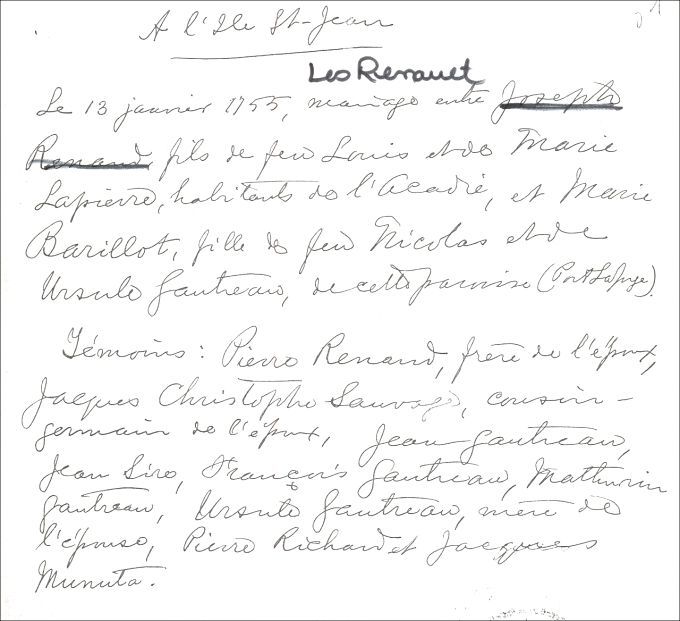 A l'Ile St-Jean
Les Renauet
Le 13 janvier 1755, mariage entre Joseph
Renaud, fils de feu Louis et de Marie
Lapierre, habitants de l'Acadie, et Marie
Barillot, fille de feu Nicolas et de
Ursule Gautreau, de cette paroisse (Port Lajoye).
Témoins : Pierre Renaud, frère de l'époux,
Jacques Christophe Sauvage, cousin-
germain de l'époux, Jean Gautreau,
Jean Siro, François Gautreau, Mathurin
Gautreau, Ursule Gautreau, mère de
l'épouse, Pierre Richard et Jacques
Munuta.